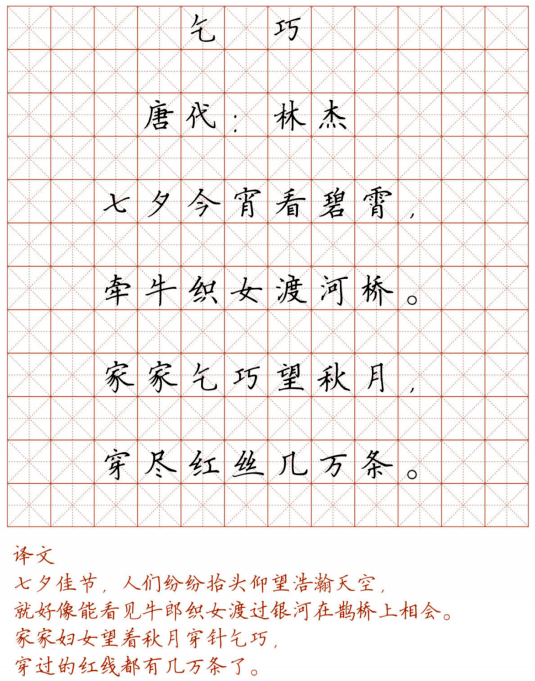 乞 巧
唐代：林杰
七夕今宵看碧霄，
牵牛织女渡河桥。
家家乞巧望秋月，
穿尽红丝几万条。
译文
七夕佳节，人们纷纷抬头仰望浩瀚天空，
就好像能看见牛郎织女渡过银河在鹊桥上相会。
家家妇女望着秋月穿针乞巧，
穿过的红线都有几万条了。